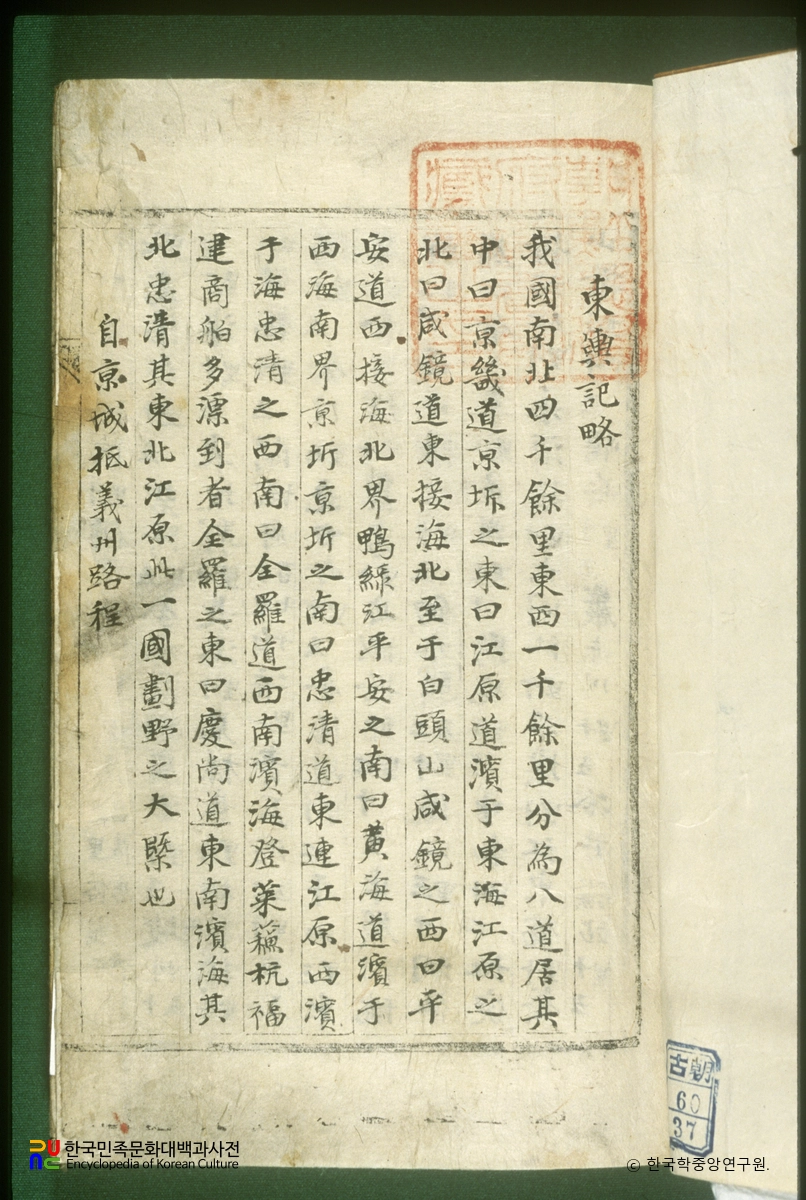 東輿記略
我國南北四千餘里東西一千餘里分為八道居其
中曰京畿道京圻之東曰江原道濱于東海江原之
北曰咸鏡道東接海北至于白頭山咸鏡之西曰平
安道西接海北界鴨綠江平安之南曰黃海道濱于
西海南界京圻京圻之南曰忠清道東連江原西濱
于海忠清之西南曰全羅道西南濱海登萊蘓杭福
建商舶多漂到者全羅之東曰慶尚道東南濱海其
北忠清其東北江原此一國劃野之大槩也
自京城抵義州路程
古朝
60
37
한국민족문화대백과사전
Encyclopedia of Korean Culture
ⓒ 한국학중앙연구원.